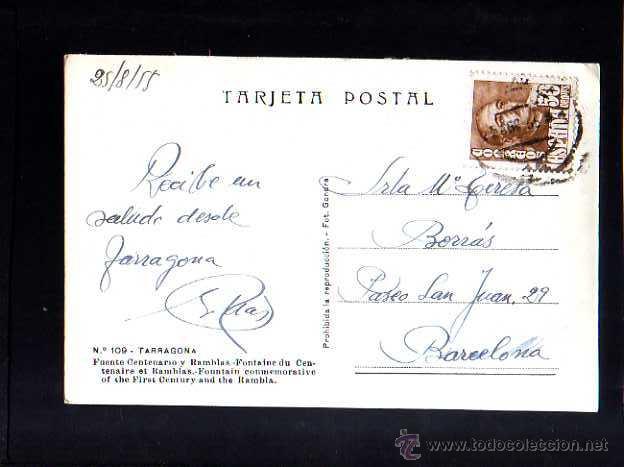 25/8/55
TARJETA POSTAL
Recibe un
saludo desde
Tarragona
Srta Mª Teresa
Borrás
Paseo San Juan, 29
Barcelona
Prohibida la reproducción. - Fot. Gandra
N.º 109 - TARRAGONA
Fuente Centenario y Ramblas.-Fontaine du Cen-
tenaire et Ramblas.-Fountain conmemorative
of the First Century and the Rambla.
ESPAÑA
CORREOS
todocoleccion
www.todocoleccion.net